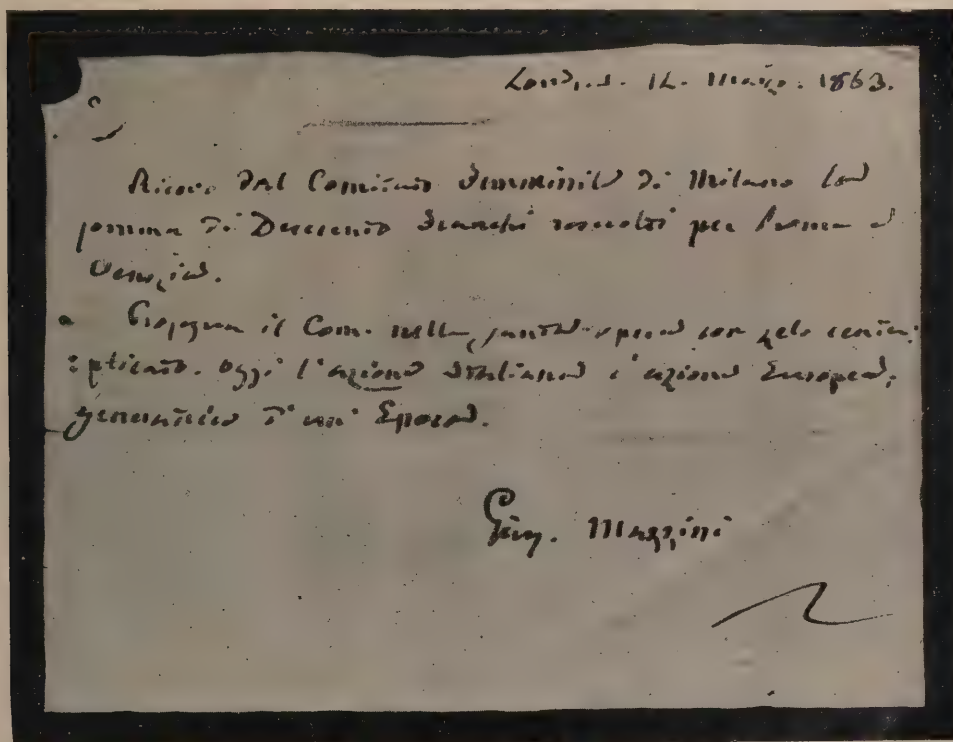 Londra. 12. Marzo. 1863.
Ricevo dal Comitato Femminile di Milano la
somma di Duecento Franchi raccolti per Roma e
Venezia.
Prosegua il Com. nella santa opera con zelo centu-
:plicato. Oggi l'azione Italiana è azione Europea,
generatrice d'un' Epoca.
Gius. Mazzini